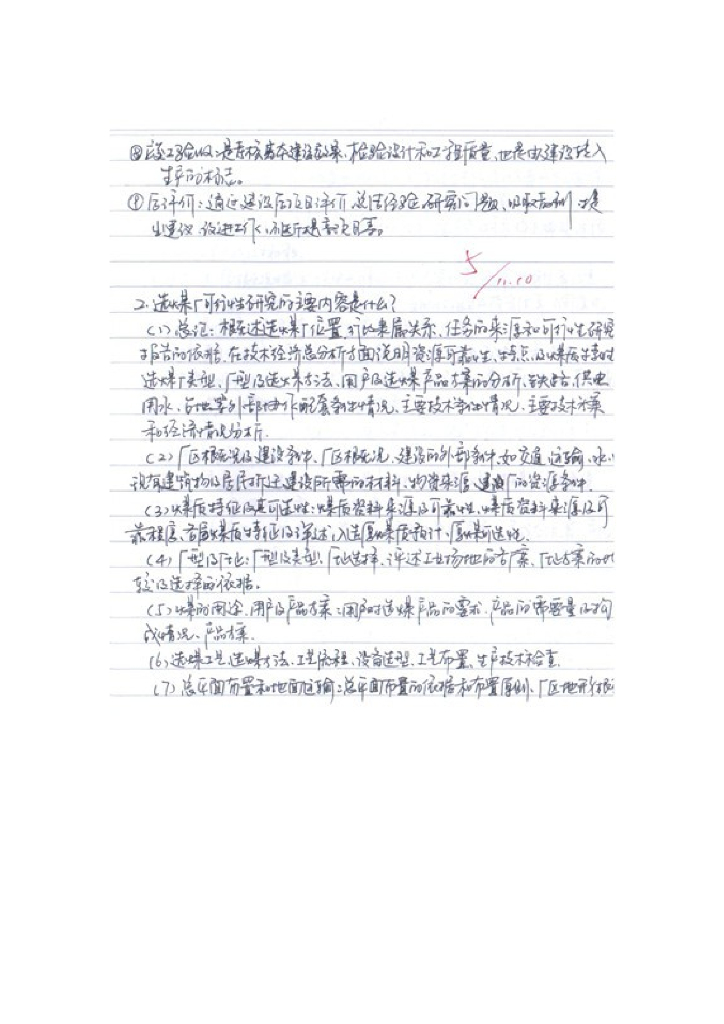 ⑧竣工验收:是考核基本建设效果、检验设计和工程质量,也是由建设转入
生产的标志。
⑨后评价:通过建设后项目评价总结经验、研究问题、吸取教训、提
出建议、改进工作、不断提高项目
5/11.10
2.选煤厂可行性研究的主要内容是什么?
(1)总论:概述选煤厂位置、矿区隶属关系、任务的来源和可行性研究
报告的依据,在技术经济总分析方面说明资源可靠性、特点及煤质特征
选煤厂类型、厂型及选煤方法、用户及选煤产品方案的分析、铁路、供电
用水、占地等外部协作配套条件情况、主要技术条件情况、主要技术方案
和经济情况分析.
(2)厂区概况及建设条件:厂区概况、建设的外部条件,如交通运输、水、
现有建筑物及居民拆迁、建设所需的材料、物资来源、建厂的资源条件.
(3)煤质特征及其可选性:煤质资料来源及可靠性、煤质资料来源及可
靠程度、各层煤质特征及评述、入选原煤质预计、原煤可选性.
(4)厂型及厂址:厂型及类型、厂址选择、评述工业场地的方案、厂址方案的比
较及选择的依据。
(5)煤的用途、用户及产品方案:用户对选煤产品的要求、产品的需要量及构
成情况、产品方案.
(6)选煤工艺:选煤方法、工艺流程、设备选型、工艺布置、生产技术检查
(7)总平面布置和地面运输:总平面布置的依据和布置原则、厂区地形